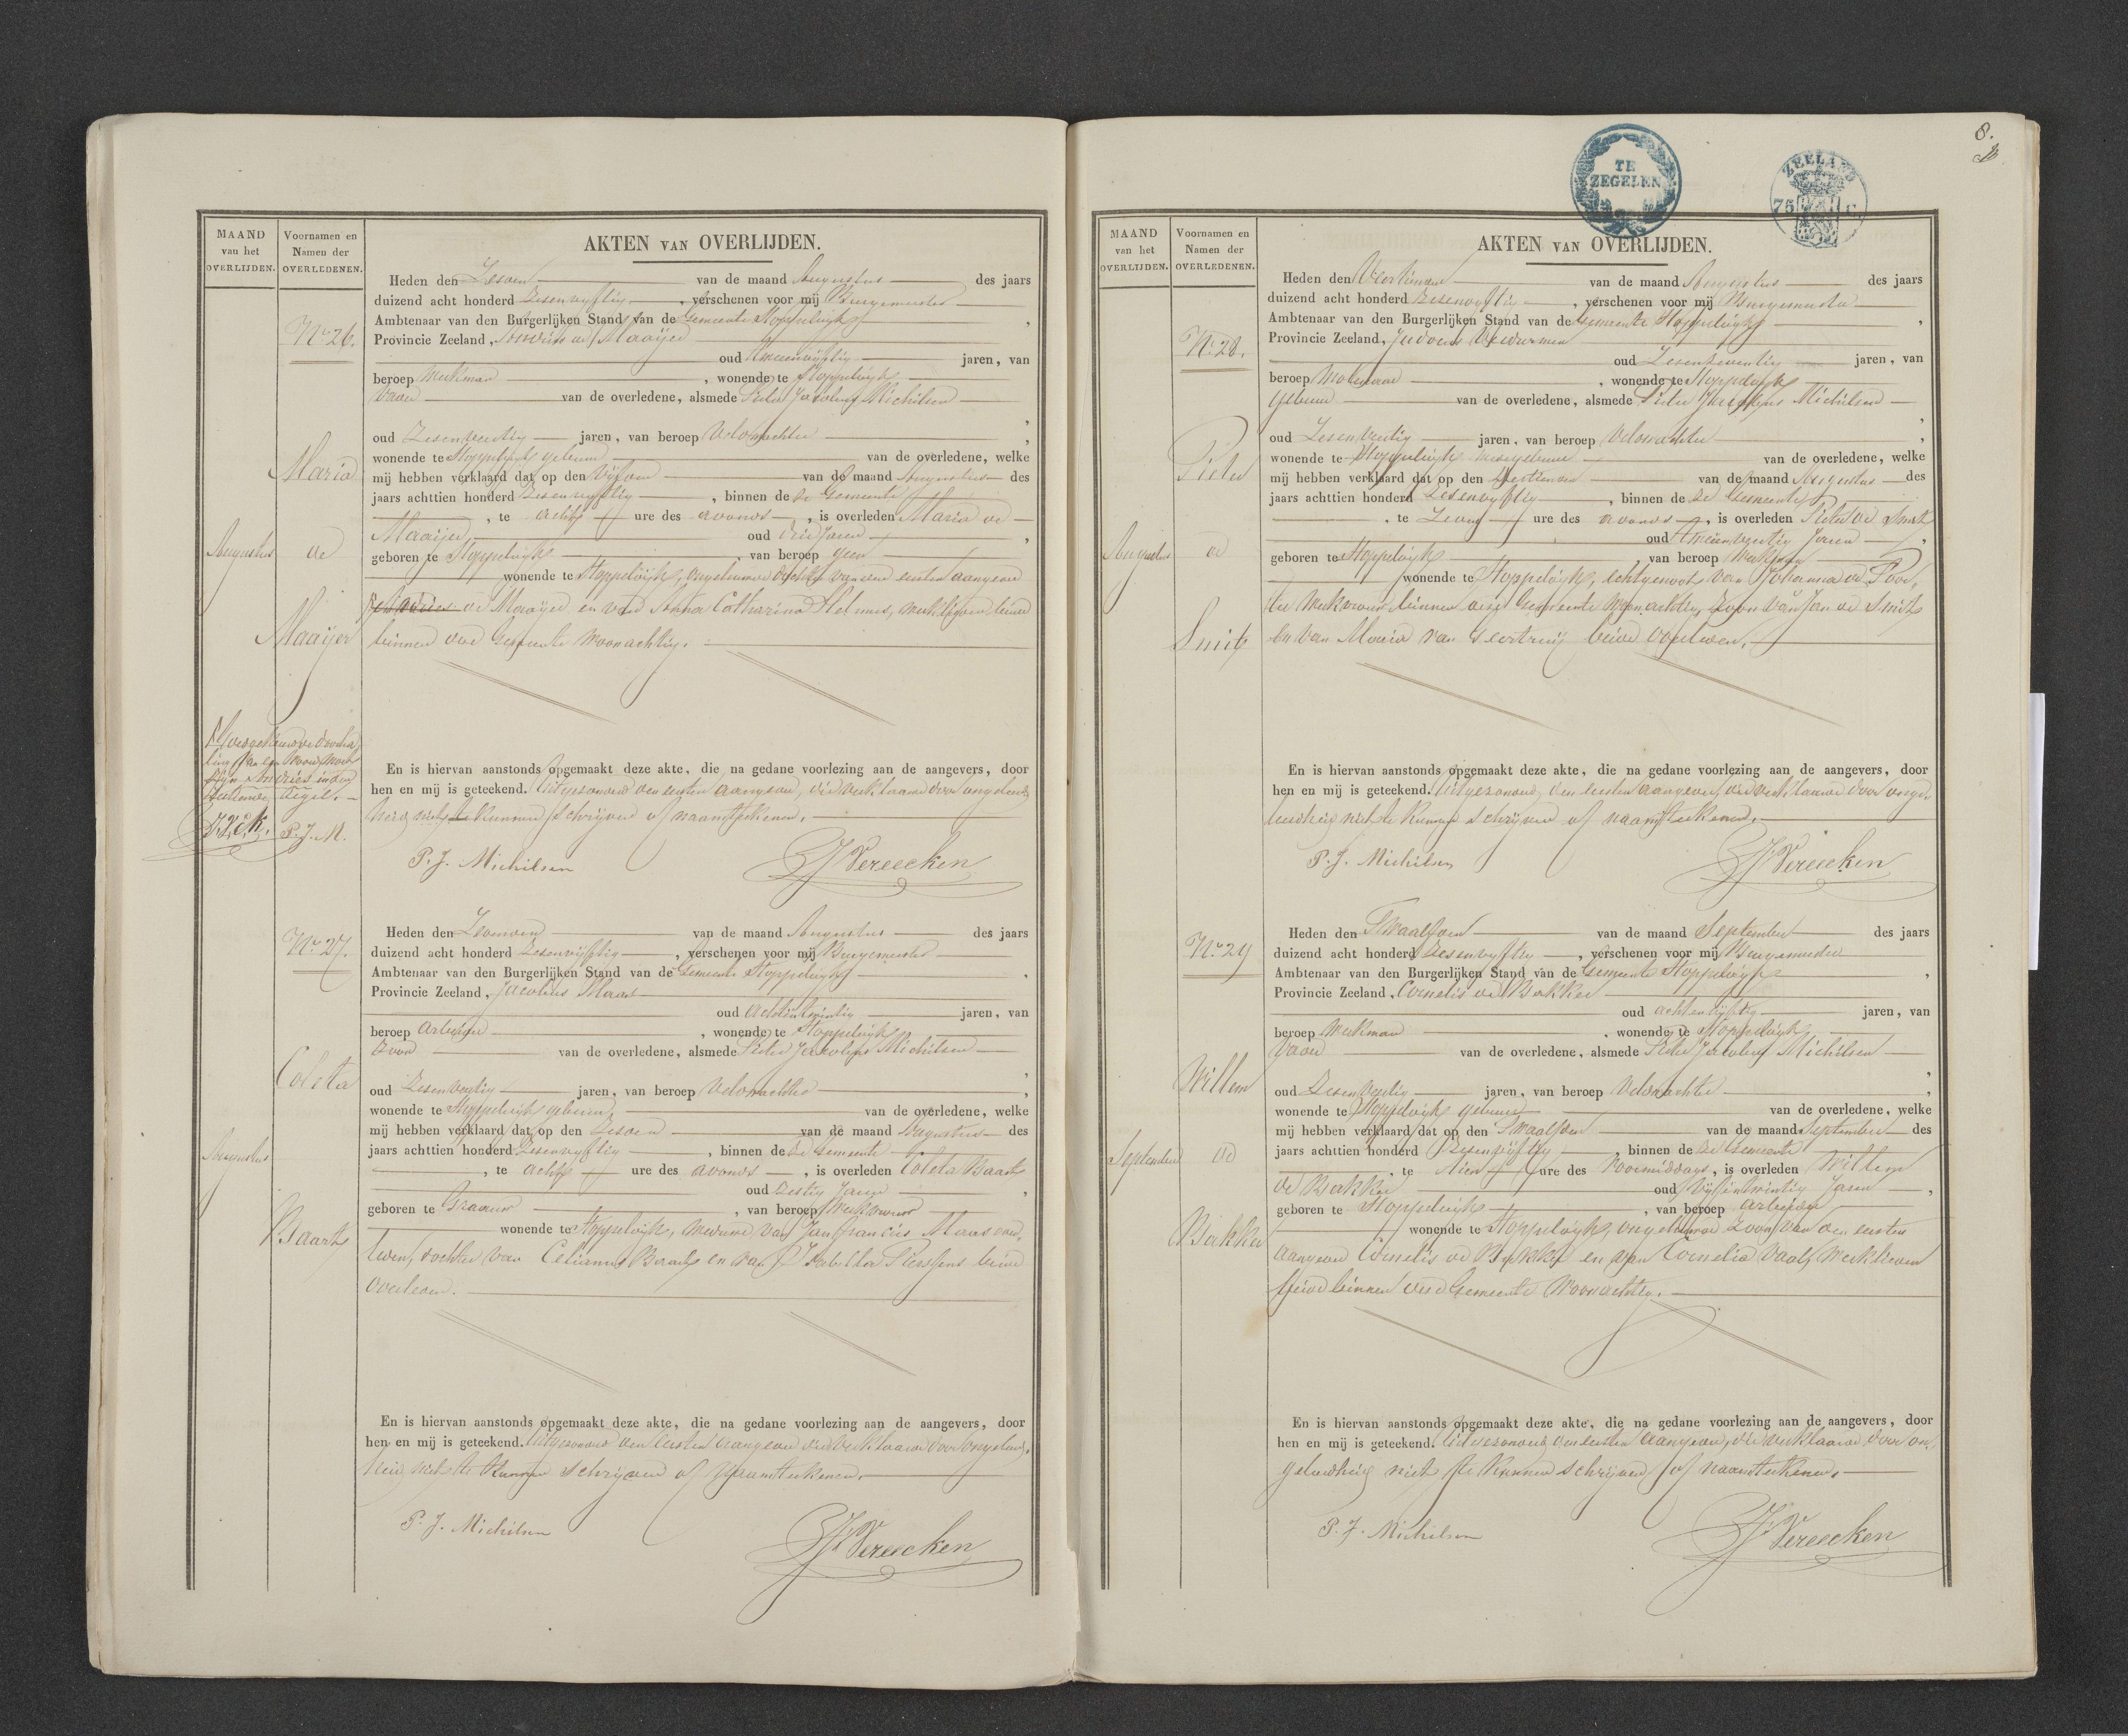 MAAND
van het
OVERLIJDEN.
Voornamen en
Namen der
OVERLEDENEN.
AKTEN VAN OVERLIJDEN.
No 26.
Maria
Augustus de
Maaijer
Heden den Zesden van de maand Augustus des jaars
duizend acht honderd Zesenvijftig, verschenen voor mij Burgemeester
Ambtenaar van den Burgerlijken Stand van de Gemeente Stoppeldijk,
Provincie Zeeland, Andries de Maaijer
oud Tweeenvijftig jaren, van
beroep Werkman, wonende te Stoppeldijk
Vader van de overledene, alsmede Pieter Jacobus Michilsen,
oud Zesenveertig jaren, van beroep Veldwachter,
wonende te Stoppeldijk gebuur van de overledene, welke
mij hebben verklaard dat op den Vijfden van de maand Augustus des
jaars achttien honderd Zesenvijftig, binnen de ze Gemeente
, te acht ure des avonds, is overleden Maria de
Maaijer oud Drie Jaren,
geboren te Stoppeldijk, van beroep geen
wonende te Stoppeldijk, ongehuwde dochter van den eersten aangever
de Maaijer en van Anna Catharina Helmes, werklieden beide
binnen deze Gemeente Woonachtig.
Andries in den
P. J. M.
En is hiervan aanstonds opgemaakt deze akte, die na gedane voorlezing aan de aangevers, door
hen en mij is geteekend. Uitgezonderd den eersten aangever, die verklaarde door ongeleerd-
heid niet te kunnen schrijven of naamteekenen.
P. J. Michilsen J Vereecken
No 27.
Coleta
Augustus
Baart
Heden den Zevenden van de maand Augustus des jaars
duizend acht honderd Zesenvijftig, verschenen voor mij Burgemeester
Ambtenaar van den Burgerlijken Stand van de Gemeente Stoppeldijk,
Provincie Zeeland, Jacobus Maas
oud Achtentwintig jaren, van
beroep arbeider, wonende te Stoppeldijk
Zoon van de overledene, alsmede Pieter Jacobus Michilsen,
oud Zesenveertig jaren, van beroep Veldwachter,
wonende te Stoppeldijk gebuur, van de overledene, welke
mij hebben verklaard dat op den Zesden van de maand Augustus des
jaars achttien honderd Zesenvijftig, binnen de ze Gemeente
, te acht ure des avonds, is overleden Coleta Baart
oud Zestig Jaren,
geboren te Graauw, van beroep Werkvrouw
wonende te Stoppeldijk, Weduwe van Jan Francies Maas over-
leden, dochter van Baart en van Isabella beide
overleden.
En is hiervan aanstonds opgemaakt deze akte, die na gedane voorlezing aan de aangevers, door
hen en mij is geteekend. Uitgezonderd den eersten aangever die verklaarde door ongeleerd-
heid niet te kunnen schrijven of naamteekenen.
P. J. Michilsen J Vereecken
8.
TE
ZEGELEN
ZEELAND
75 C.
MAAND
van het
OVERLIJDEN.
Voornamen en
Namen der
OVERLEDENEN.
AKTEN VAN OVERLIJDEN.
No 28.
Pieter
Augustus de
Smit
Heden den Veertienden van de maand Augustus des jaars
duizend acht honderd Zesenvijftig, verschenen voor mij Burgemeester
Ambtenaar van den Burgerlijken Stand van de Gemeente Stoppeldijk,
Provincie Zeeland, Judocus
oud Zesenzeventig jaren, van
beroep Molenaar, wonende te Stoppeldijk
Gebuur van de overledene, alsmede Pieter Jacobus Michilsen,
oud Zesenveertig jaren, van beroep Veldwachter,
wonende te Stoppeldijk medegebuur van de overledene, welke
mij hebben verklaard dat op den Dertienden van de maand Augustus des
jaars achttien honderd Zesenvijftig, binnen de ze Gemeente
, te Zeven ure des avonds, is overleden Pieter de Smit
oud Jaren,
geboren te Stoppeldijk, van beroep Werkman
wonende te Stoppeldijk, echtgenoot van Johanna de Poor-
ter Werkvrouw binnen deze Gemeente Woonachtig, Zoon van Jan de Smit
en van Maria van beide overleden.
En is hiervan aanstonds opgemaakt deze akte, die na gedane voorlezing aan de aangevers, door
hen en mij is geteekend. Uitgezonderd den eersten aangever, die verklaarde door onge-
leerdheid niet te kunnen schrijven of naamteekenen.
P. J. Michilsen J Vereecken
No 29
Willem
September de
Bakker
Heden den Twaalfden van de maand September des jaars
duizend acht honderd Zesenvijftig, verschenen voor mij Burgemeester
Ambtenaar van den Burgerlijken Stand van de Gemeente Stoppeldijk,
Provincie Zeeland, Cornelis de Bakker
oud achtenvijftig jaren, van
beroep Werkman, wonende te Stoppeldijk
Vader van de overledene, alsmede Pieter Jacobus Michilsen,
oud Zesenveertig jaren, van beroep Veldwachter,
wonende te Stoppeldijk gebuur van de overledene, welke
mij hebben verklaard dat op den Twaalfden van de maand September des
jaars achttien honderd Zesenvijftig, binnen de ze Gemeente
, te tien ure des voormiddags, is overleden Willem
de Bakker oud Vijfentwintig Jaren,
geboren te Stoppeldijk, van beroep arbeider
wonende te Stoppeldijk, ongehuwde Zoon van den eersten
aangever Cornelis de Bakker en van Cornelia Baal, werklieden
beide binnen deze Gemeente Woonachtig.
En is hiervan aanstonds opgemaakt deze akte, die na gedane voorlezing aan de aangevers, door
hen en mij is geteekend. Uitgezonderd den eersten aangever, die verklaarde door on-
geleerdheid niet te kunnen schrijven of naamteekenen.
P. J. Michilsen J Vereecken